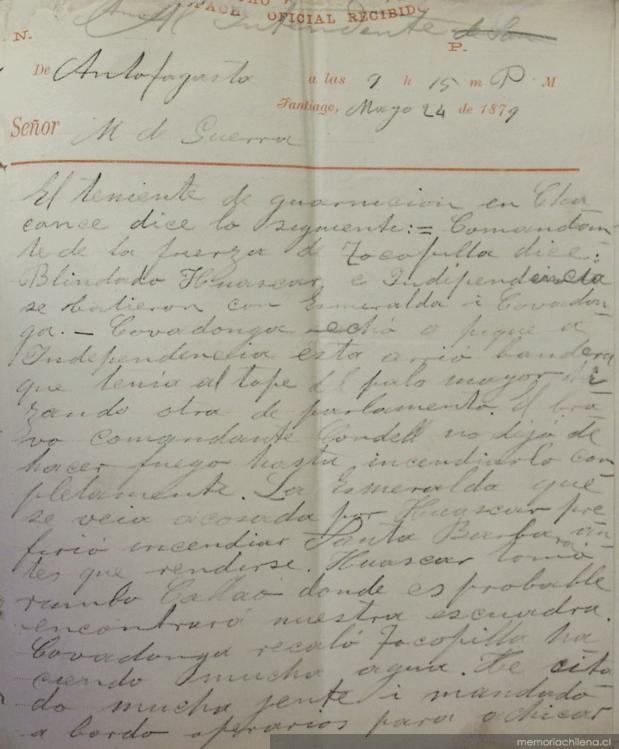 OFICIAL RECIBIDO
Al Intendente
N.
P.
De Antofagasta a las 9 h 15 m P. M
Santiago, Mayo 24 de 1879
Señor M de Guerra
El teniente de guarnicion en Cha
cance dice lo siguiente: = Comandan-
te de la fuerza de Tocopilla dice:
Blindado Huascar e Independencia
se batieron con Esmeralda i Covadon
ga. — Covadonga echó a pique a
Independencia ésta arrió bandera
que tenia al tope del palo mayor i
zando otra de parlamento. El bra
vo comandante Condell no dejó de
hacer fuego hasta incendiarlo com
pletamente. La Esmeralda que
se veia acosada por Huascar pre
firió incendiar Santa Barbara án
tes que rendirse. Huascar tomó
rumbo Callao donde es probable
encontrará nuestra escuadra.
Covadonga recaló Tocopilla ha
ciendo mucha agua. He cita
do mucha jente i mandado
a bordo operarios para achicar
memoriachilena.cl